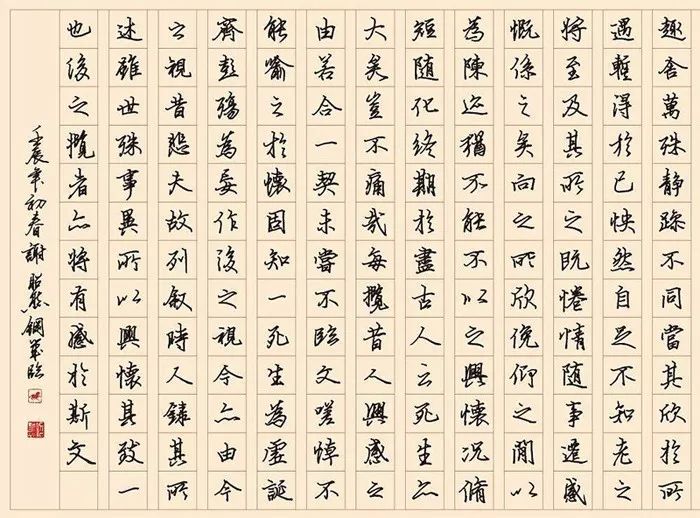 趣舍萬殊静躁不同當其欣於所
遇暫得於己快然自足不知老之
將至及其所之既惓情随事遷感
慨係之矣向之所欣俛仰之閒以
為陳迹猶不能不以之興懷況脩
短随化終期於盡古人云死生亦
大矣豈不痛哉每攬昔人興感之
由若合一契未嘗不臨文嗟悼不
能喻之於懷固知一死生為虛誕
齊彭殤為妄作後之視今亦由今
之視昔悲夫故列叙時人録其所
述雖世殊事異所以興懷其致一
也後之攬者亦將有感於斯文
壬辰年初春謝昭鋼筆臨